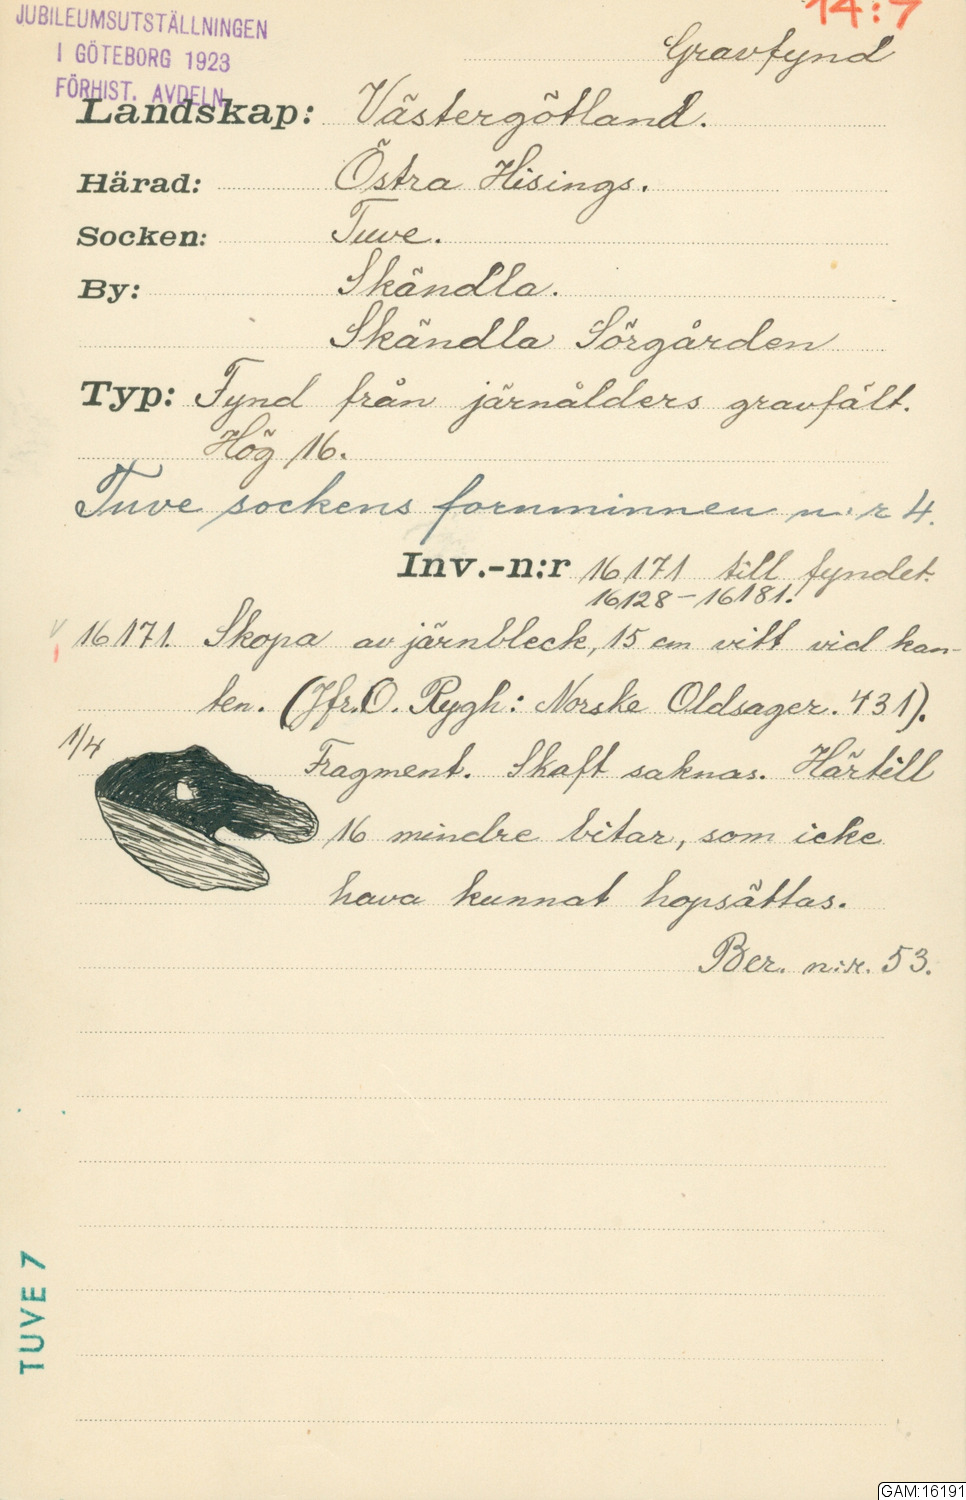 JUBILEUMSUTSTÄLLNINGEN
I GÖTEBORG 1923
FÖRHIST. AVDELN.
14:7
Gravfynd
Landskap: Västergötland.
Härad: Östra Hisings.
Socken: Tuve.
By: Skändla.
Skändla Sörgården
Typ: Fynd från järnålders gravfält.
Hög 16.
Tuve sockens fornminnen n:r 4.
Inv.-n:r 16171 till fyndet
16128-16181.
16171. Skopa av järnbleck, 15 cm vitt vid kan-
ten. (Jfr. O. Rygh: Norske Oldsager. 431).
1/4
Fragment. Skaft saknas. Härtill
16 mindre bitar, som icke
hava kunnat hopsättas.
Ber. n:r. 53.
TUVE 7
GAM:16191